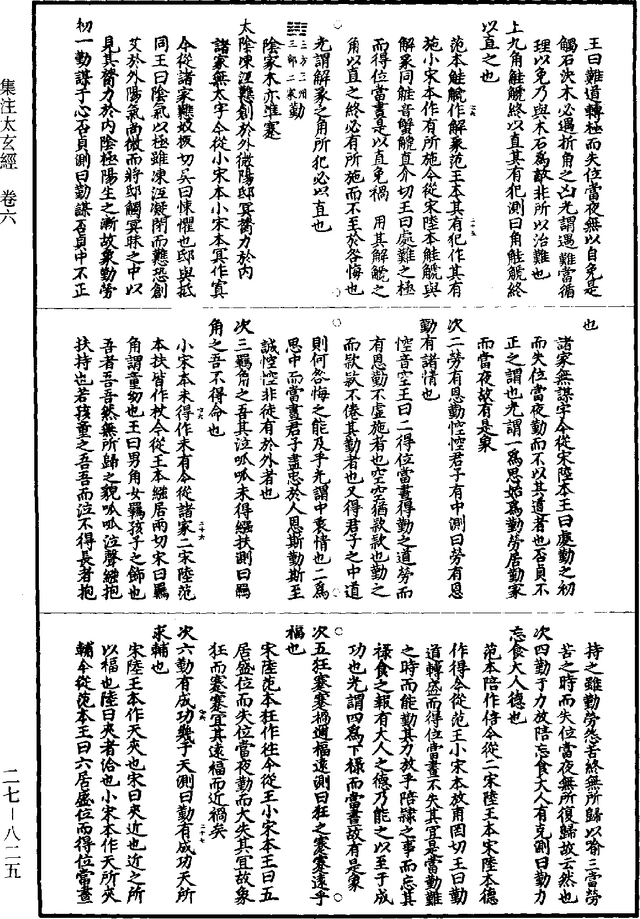 王曰難道轉極而失位當夜無以自免是
觸石決木必遇折角之凶光謂遇難當循
理以免乃與木石為敵非所以治難也
上九角觟䚦終以直其有犯測曰角觟䚦終
以直之也
范本觟䚦作解豸范王本其有犯作其有
施小宋本作有所施今從宋陸本觟䚦與
解豸同觟音蟹䚦直介切王曰處難之極
而得位當晝是以直免禍 用其解䚦之
角以直之終必有所施而不至於咎悔也
光謂解豸之角所犯必以直也
三方三州三部二家勤
陰家木亦準蹇
太陰凍沍難創於外微陽邸冥膂力於內
諸家無太字今從小宋本小宋本冥作寘
今從諸家難奴板切吳曰悚懼也邸與抵
同王曰陰氣以極雖凍沍凝閉而難恐創
艾於外陽氣尚微而將邸觸冥昧之中以
見其膂力於內陰極陽生之漸故象勤勞
初一勤謀于心否貞測曰勤謀否貞中不正
也
諸家無謀字今從宋陸本王曰處勤之初
而失位當夜勤而不以其道者也否貞不
正之謂也光謂一為思始為勤勞居勤家
而當夜故有是象
次二勞有恩勤悾悾君子有中測曰勞有恩
勤有諸情也
悾音空王曰二得位當晝得勤之道勞而
有恩勤不虛施者也空空猶款款也勤之
而款款不倦其勤者也又得君子之中道
則何咎悔之能及乎光謂中衷情也二為
思中而當晝君子盡忠於人恩斯勤斯至
誠悾悾非徒有於外者也
次三羈角之吾其泣呱呱未得繦扶測曰羈
角之吾不得命也
小宋本未得作未有今從諸家二宋陸范
本扶皆作杖今從王本繦居兩切宋曰羈
角謂童幼也王曰男角女羈孩子之飾也
吾者吾吾然無所歸之貌呱呱泣聲繦抱
扶持也若孩童之吾吾而泣不得長者抱
持之雖勤勞怨苦終無所歸以喻三當勞
苦之時而失位當夜無所復歸故云然也
次四勤于力放陪忘食大人有克測曰勤力
忘食大人德也
范本陪作倍今從二宋陸王本宋陸本德
作得今從范王小宋本放甫罔切王曰勤
道轉盛而得位當晝不失其宜是當勤難
之時而能勤其力放乎陪隸之事而忘其
祿食之報有大人之德乃能之以至于成
功也光謂四為下祿而當晝故有是象
次五狂蹇蹇禍邇福遠測曰狂之蹇蹇遠乎
福也
宋陸范本狂作往今從王小宋本王曰五
居盛位而失位當夜勤而大失其宜故象
狂而蹇蹇宜其遠福而近禍矣
次六勤有成功幾于天測曰勤有成功天所
來輔也
宋陸王本作天夾也宋曰夾近也近之所
以福也陸曰夾者洽也小宋本作天所夾
輔今從范本王曰六居盛位而得位當晝
集注太玄經 卷六
二七-八二五